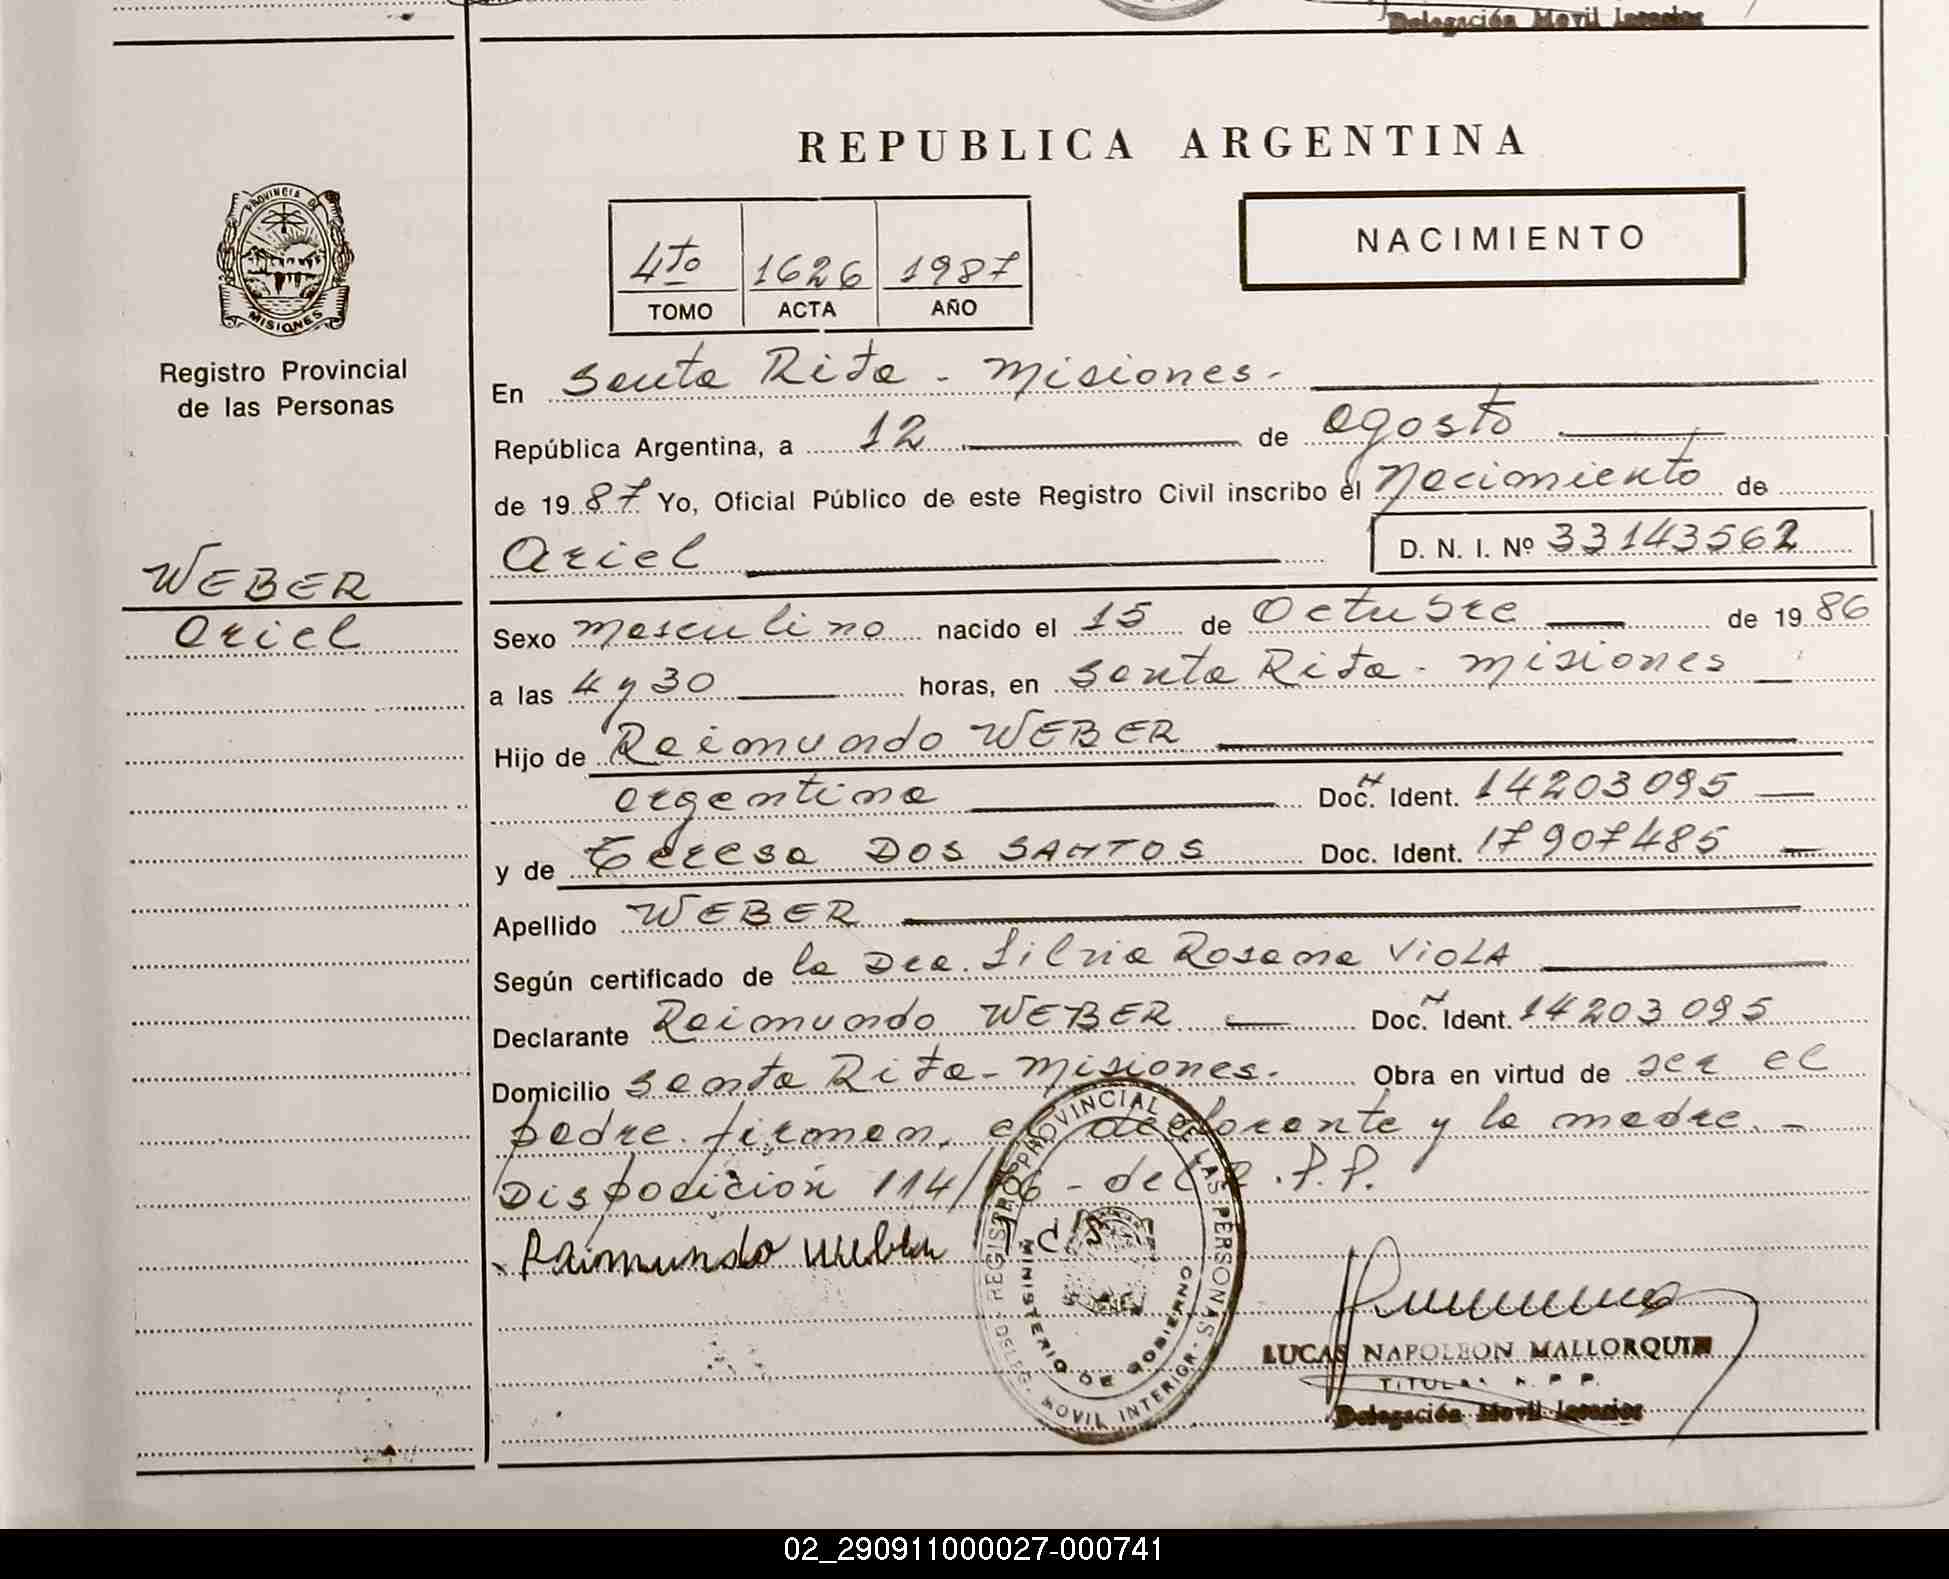 Delegación Movil Interior
REPUBLICA ARGENTINA
PROVINCIA DE
MISIONES
Registro Provincial
de las Personas
4to 1626 1987
TOMO ACTA AÑO
NACIMIENTO
WEBER
Ariel
En Santa Rita - Misiones.-
República Argentina, a 12 de agosto
de 1987 Yo, Oficial Público de este Registro Civil inscribo el Nacimiento de
Ariel D. N. I. Nº 33143562
Sexo masculino nacido el 15 de Octubre de 1986
a las 4 y 30 horas, en Santa Rita - Misiones
Hijo de Raimundo WEBER
argentina Doc. Ident. 14203095
y de Teresa DOS SANTOS Doc. Ident. 17907485
Apellido WEBER
Según certificado de la Dra. Silvia Rosana VIOLA
Declarante Raimundo WEBER Doc. Ident. 14203095
Domicilio Santa Rita - Misiones. Obra en virtud de ser el
padre. firman, el declarante y la madre.-
Disposición 114/86 - del R.P.P.
Raimundo Weber T C S
REGISTRO PROVINCIAL DE LAS PERSONAS
MINISTERIO DE GOBIERNO
DELEG. MOVIL INTERIOR
LUCAS NAPOLEON MALLORQUIN
TITULAR R. P. P.
Delegación Movil Interior
02_290911000027-000741